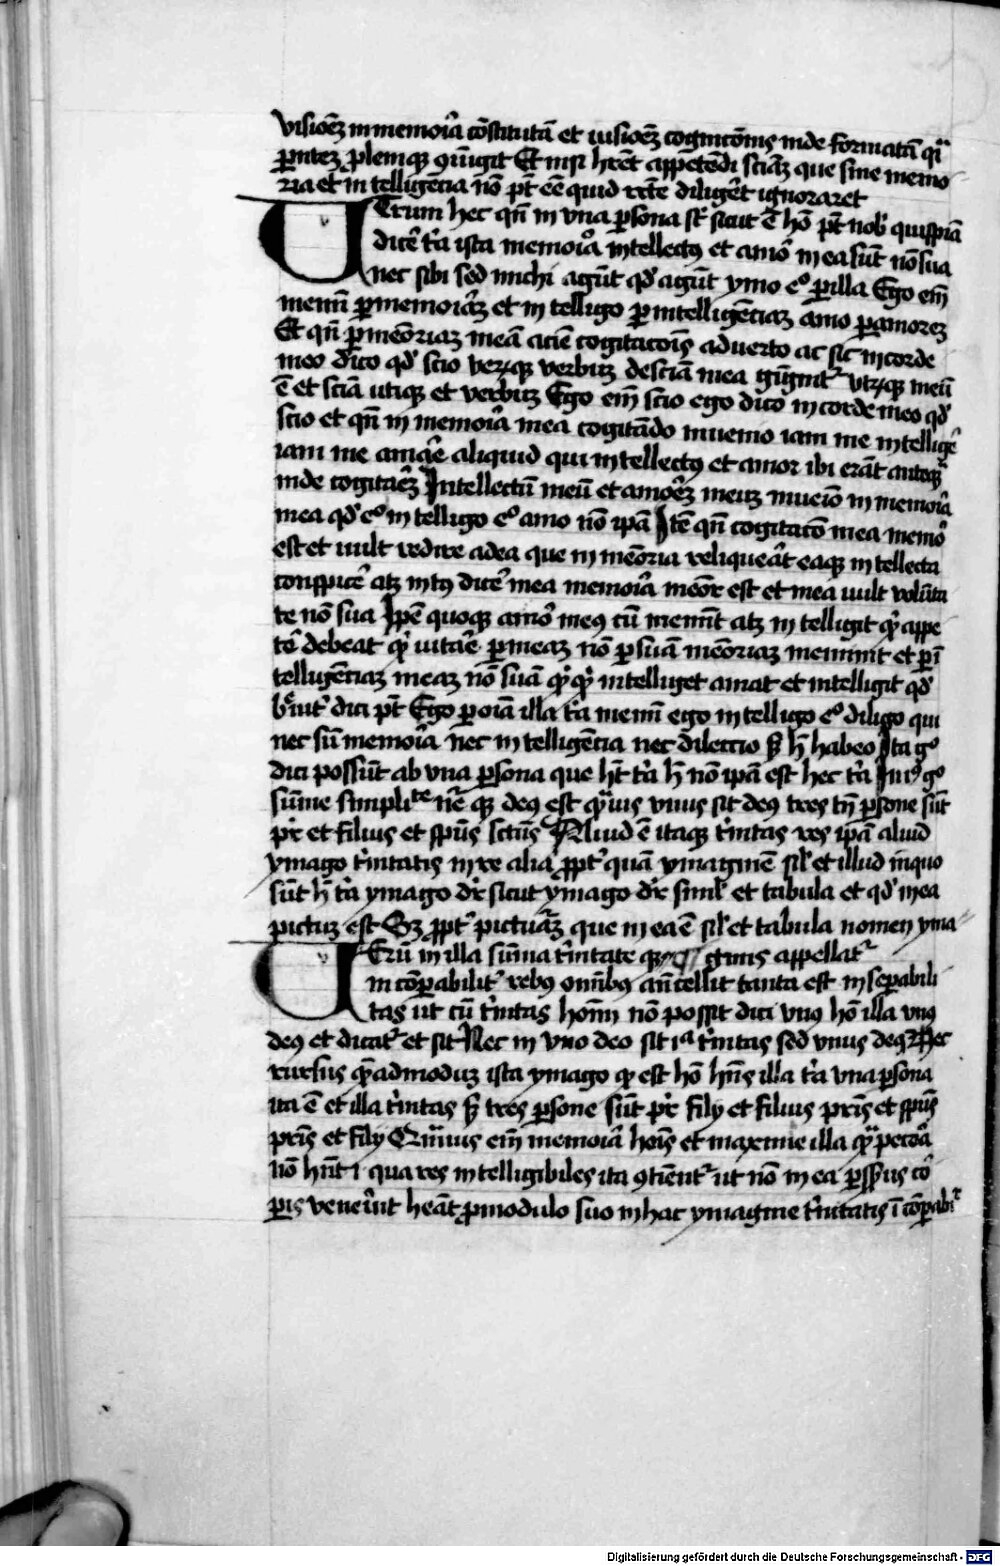 visionē in memoria cōstitutā et visionē cogitacōnis inde formatā q̄i
parentē prolemq; cōiūgit Et nisi hēret appetēdi sciāz que sine memo
ria et intelligēcia nō pt ee quid recte diligeret ignoraret
Uerum hec qn̄ in vna persona sūt sicut ē hō pt nobis quispiā
dicere tria ista memoria intellectus et amor mea sūt nō sua
nec sibi sed michi agūt qd agūt ymo ego per illa Ego em̄
memini per memoriaz et intelligo per intelligēciaz amo per amorez
Et qn̄ per memoriaz meā aciē cogitacōis aduerto ac sic in corde
meo dico qd scio verūq; verbuz de sciā mea gignitur vtrūq; meū
ē et sciā utiq; et verbuz Ego em̄ scio ego dico in corde meo qd
scio et qn̄ in memoria mea cogitādo inuenio iam me intelligere
iam me amare aliquid qui intellectus et amor ibi erāt anteq̄
inde cogitarez Intellectū meū et amorez meuz inuenio in memoria
mea qd ego intelligo ego amo nō ipā Itē qn̄ cogitacō mea memor
est et uult redire ad ea que in memoria reliquerat eaq; intellecta
conspicere atq; intus dicere mea memoria memor est et mea uult volūta
te nō sua Ipse quoq; amor meus cū meminit atq; intelligit quid appe
tere debeat quid uitare per meaz nō per suā memoriaz meminit et per in
telligēciaz meaz nō suā quicquid intelligēter amat et intelligit qd
breuiter dici pt Ego per oia illa tria memini ego intelligo ego diligo qui
nec sū memoria nec intelligēcia nec dilectio sed hec habeo Ita ergo
dici possūt ab vna persona que habet tria hec nō ipā est hec tria In illius ergo
sūme simplicitate nature que deus est quāuis vnus sit deus tres tn̄ persone sūt
pr et filius et spūs sctūs Aliud ē itaq; trinitas res ipā aliud
ymago trinitatis in re alia propter quā ymaginē simul et illud in quo
sūt hec tria ymago dr sicut ymago dr simul et tabula et qd in ea
pictuz est Sz propter picturāz que in ea ē simul et tabula nomen yma
Uerū in illa sūma trinitate que ginis appellatur
incōparabiliter rebus omībus antecellit tanta est inseparabili
tas ut cū trinitas homī nō possit dici vnus hō illa vnus
deus et dicatur et sit Nec in vno deo sit illa trinitas sed vnus deus Nec
rursus quēadmoduz ista ymago que est hō habens illa tria vna persona
ita ē et illa trinitas sed tres persone sūt pr filij et filius pris et spūs
pris et filij Quāuis em̄ memoria hois et maxime illa quā pecora
nō hnt i qua res intelligibiles ita cōtinentur ut nō in ea per sensus cor
poris venerint heāt pro modulo suo in hac ymagine trinitatis incōparabi